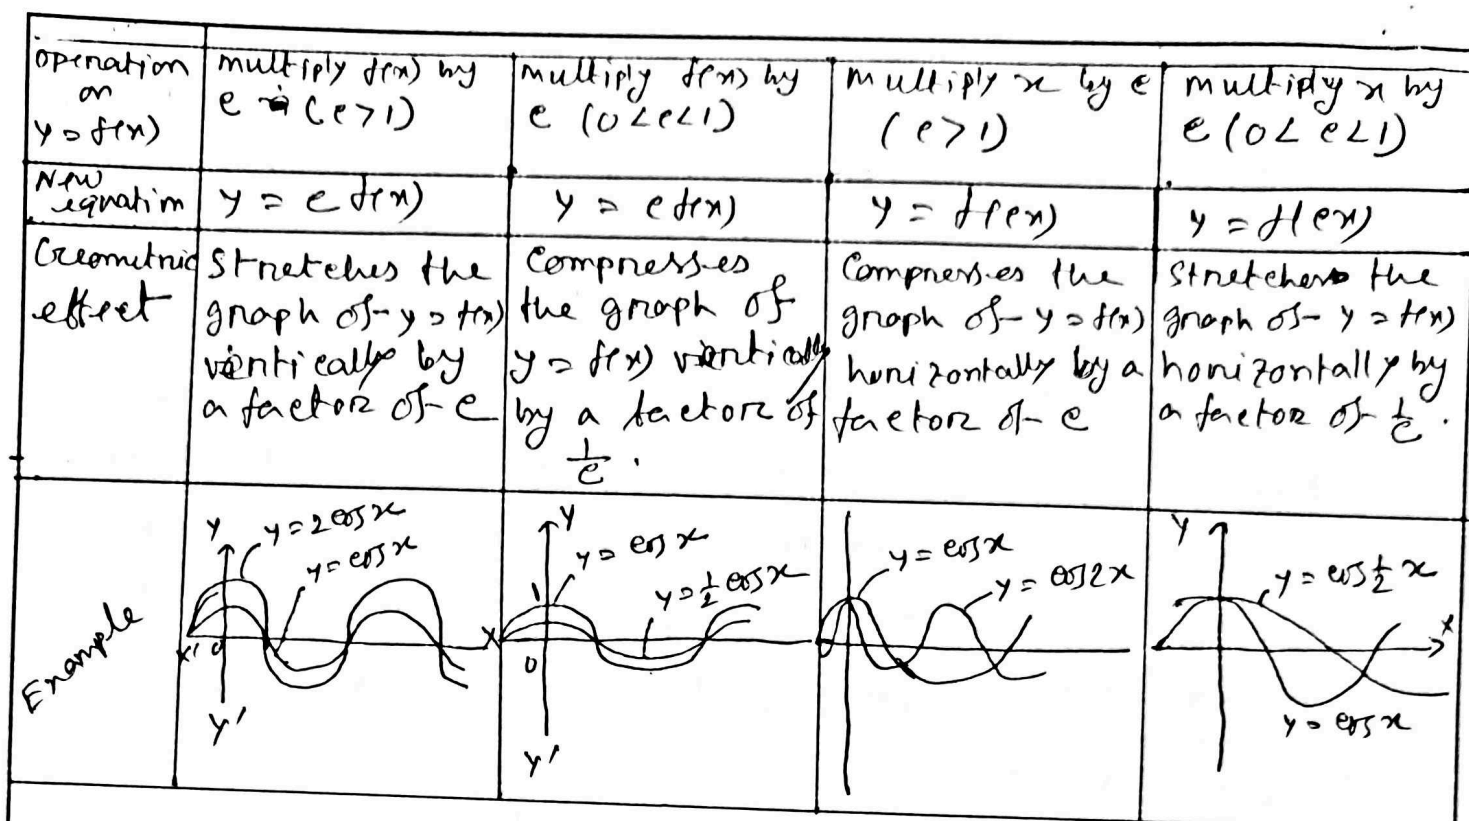 operation
on
y = f(x)
multiply f(x) by
c (c>1)
multiply f(x) by
c (0<c<1)
multiply x by c
(c>1)
multiply x by
c (0<c<1)
New
equation
y = c f(x)
y = c f(x)
y = f(cx)
y = f(cx)
Geometric
effect
Stretches the
graph of y = f(x)
vertically by
a factor of c
Compresses
the graph of
y = f(x) vertically
by a factor of
1/c .
Compresses the
graph of y = f(x)
horizontally by a
factor of c
Stretches the
graph of y = f(x)
horizontally by
a factor of 1/c .
Example
Y
y = 2 cos x
y = cos x
X'
0
X
Y'
Y
y = cos x
1
y = 1/2 cos x
0
Y'
y = cos x
y = cos 2x
Y
y = cos 1/2 x
x
y = cos x